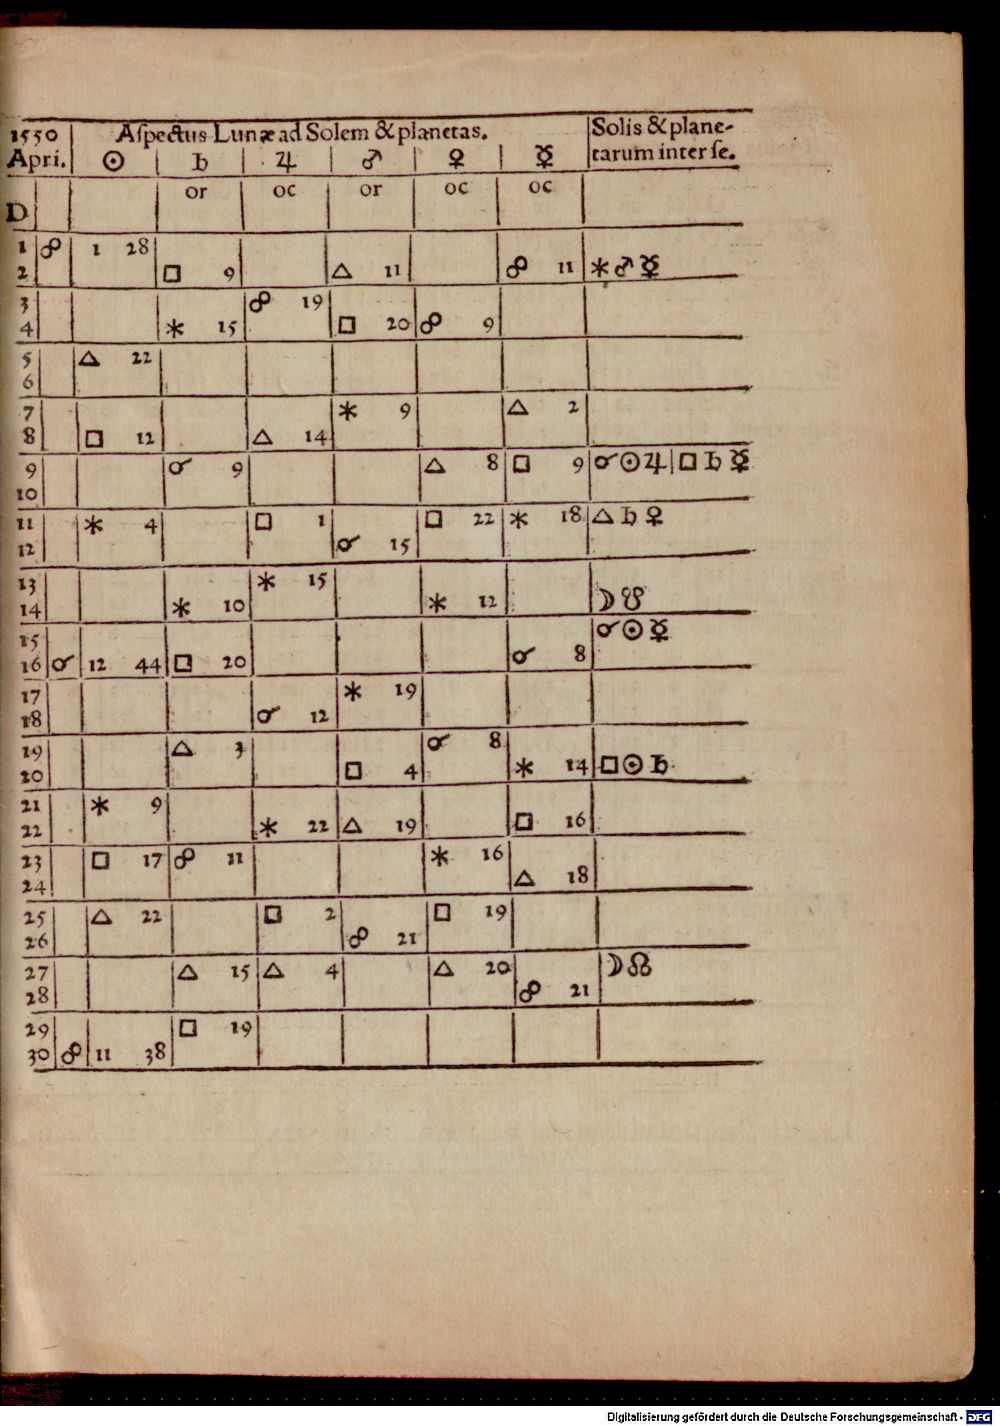 1550 Aſpectus Lunæ ad Solem & planetas. Solis & plane-
Apri. ☉ ♄ ♃ ♂ ♀ ☿ tarum inter ſe.
D or oc or oc oc
1 ☍ 1 28
2 □ 9 △ 11 ☍ 11 ⚹ ♂ ☿
3 ☍ 19
4 ⚹ 15 □ 20 ☍ 9
5 △ 22
6
7 ⚹ 9 △ 2
8 □ 12 △ 14
9 ☌ 9 △ 8 □ 9 ☌ ☉ ♃ | □ ♄ ☿
10
11 ⚹ 4 □ 1 □ 22 ⚹ 18 △ ♄ ♀
12 ☌ 15
13 ⚹ 15
14 ⚹ 10 ⚹ 12 ☽ ☋
15 ☌ ☉ ☿
16 ☌ 12 44 □ 20 ☌ 8
17 ⚹ 19
18 ☌ 12
19 △ 3 ☌ 8
20 □ 4 ⚹ 14 □ ☉ ♄
21 ⚹ 9
22 ⚹ 22 △ 19 □ 16
23 □ 17 ☍ 11 ⚹ 16
24 △ 18
25 △ 22 □ 2 □ 19
26 ☍ 21
27 △ 15 △ 4 △ 20 ☽ ☊
28 ☍ 21
29 □ 19
30 ☍ 11 38
Digitalisierung gefördert durch die Deutsche Forschungsgemeinschaft - DFG